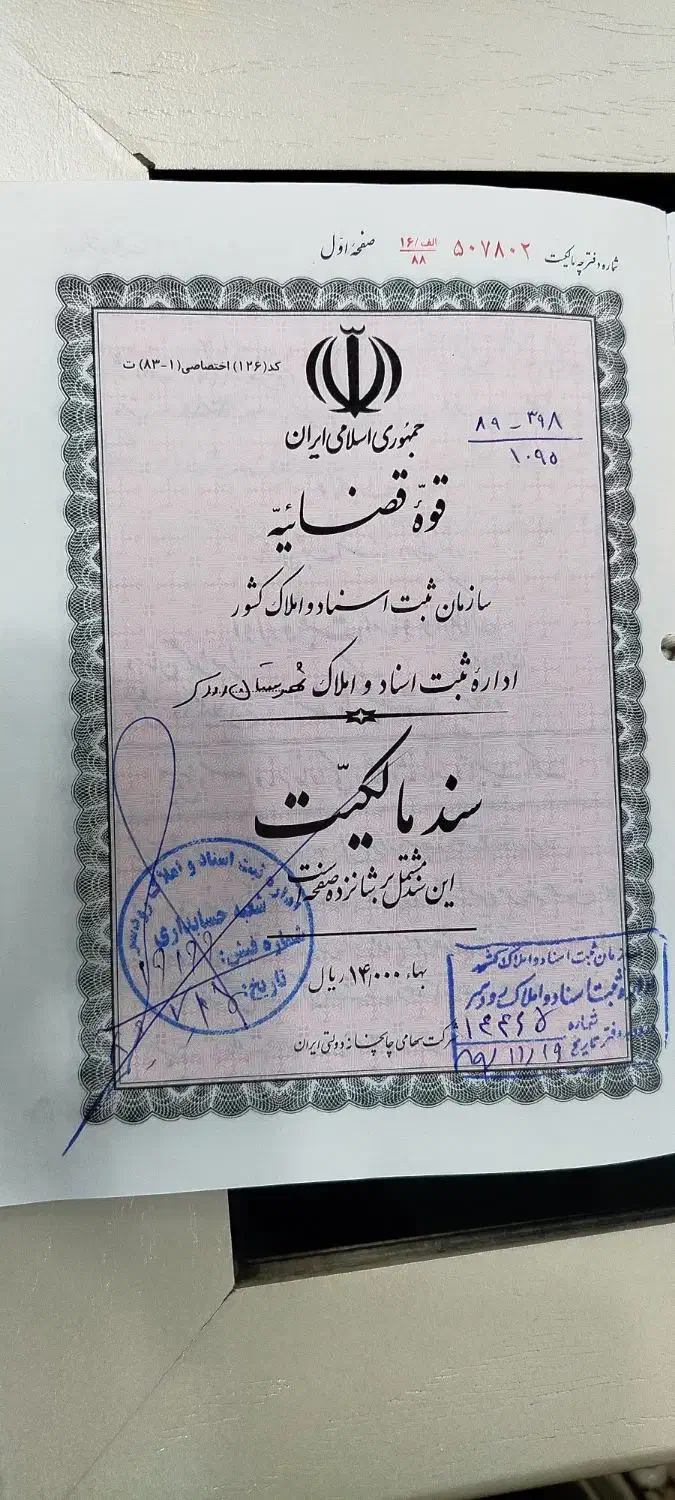 شماره دفترچه مالکیت ۵۰۷۸۰۲ الف/۱۶ ۸۸ صفحهٔ اوّل
کد(۱۲۶) اختصاصی(۱-۸۳) ت
جمهوری اسلامی ایران
۸۹ - ۳۹۸
۱۰۹۵
قوهٔ قضائیه
سازمان ثبت اسناد و املاک کشور
ادارهٔ ثبت اسناد و املاک شهرستان رودسر
سند مالکیّت
این سند مشتمل بر شانزده صفحه است
بهاء ۱۴,۰۰۰ ریال
شرکت سهامی چاپخانه دولتی ایران
اداره ثبت اسناد و املاک رودسر
شعبه حسابداری
شماره فیش:
تاریخ:
سازمان ثبت اسناد و املاک کشور
اداره ثبت اسناد و املاک رودسر
شماره ۱۴۴۶۵
دفتر تاریخ ۸۹/۱۱/۱۹